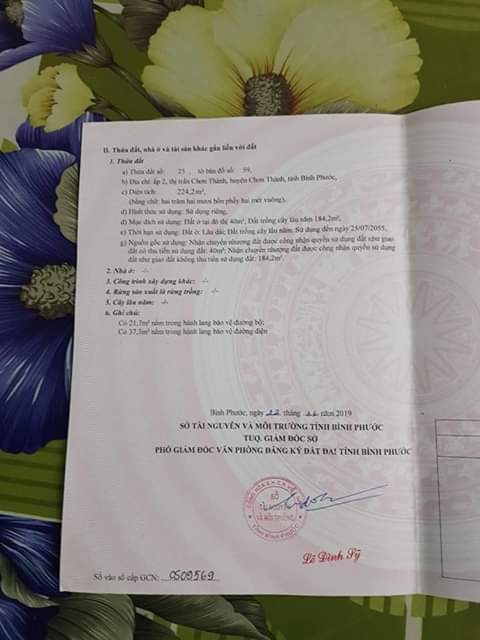 II. Thửa đất, nhà ở và tài sản khác gắn liền với đất
1. Thửa đất
a) Thửa đất số: 25 , tờ bản đồ số: 59,
b) Địa chỉ: ấp 2, thị trấn Chơn Thành, huyện Chơn Thành, tỉnh Bình Phước,
c) Diện tích: 224,2m²,
(bằng chữ: hai trăm hai mươi bốn phẩy hai mét vuông),
d) Hình thức sử dụng: Sử dụng riêng,
đ) Mục đích sử dụng: Đất ở tại đô thị 40m², Đất trồng cây lâu năm 184,2m²,
e) Thời hạn sử dụng: Đất ở: Lâu dài; Đất trồng cây lâu năm: Sử dụng đến ngày 25/07/2055,
g) Nguồn gốc sử dụng: Nhận chuyển nhượng đất được công nhận quyền sử dụng đất như giao
đất có thu tiền sử dụng đất: 40m²; Nhận chuyển nhượng đất được công nhận quyền sử dụng
đất như giao đất không thu tiền sử dụng đất: 184,2m².
2. Nhà ở: -/-
3. Công trình xây dựng khác: -/-
4. Rừng sản xuất là rừng trồng: -/-
5. Cây lâu năm: -/-
6. Ghi chú:
Có 21,7m² nằm trong hành lang bảo vệ đường bộ;
Có 37,3m² nằm trong hành lang bảo vệ đường điện
Bình Phước, ngày 22 tháng năm 2019
SỞ TÀI NGUYÊN VÀ MÔI TRƯỜNG TỈNH BÌNH PHƯỚC
TUQ. GIÁM ĐỐC SỞ
PHÓ GIÁM ĐỐC VĂN PHÒNG ĐĂNG KÝ ĐẤT ĐAI TỈNH BÌNH PHƯỚC
SỞ
TÀI NGUYÊN
VÀ MÔI TRƯỜNG
TỈNH BÌNH PHƯỚC
Lê Đình Sỹ
Số vào sổ cấp GCN: CS09569